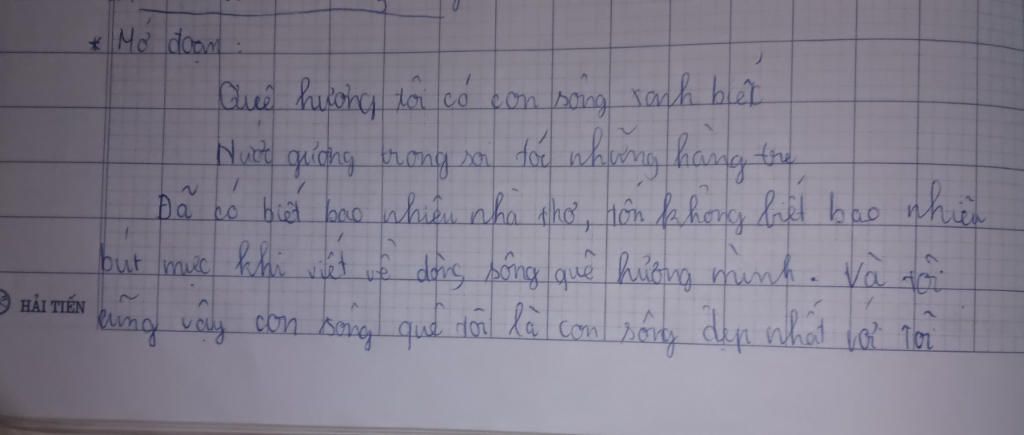 * Mở đoạn:
Quê hương tôi có con sông xanh biếc
Nước gương trong soi tóc những hàng tre
Đã có biết bao nhiêu nhà thơ, tốn không biết bao nhiêu
bút mực khi viết về dòng sông quê hương mình. Và tôi
HẢI TIẾN cũng vậy con sông quê tôi là con sông đẹp nhất với tôi